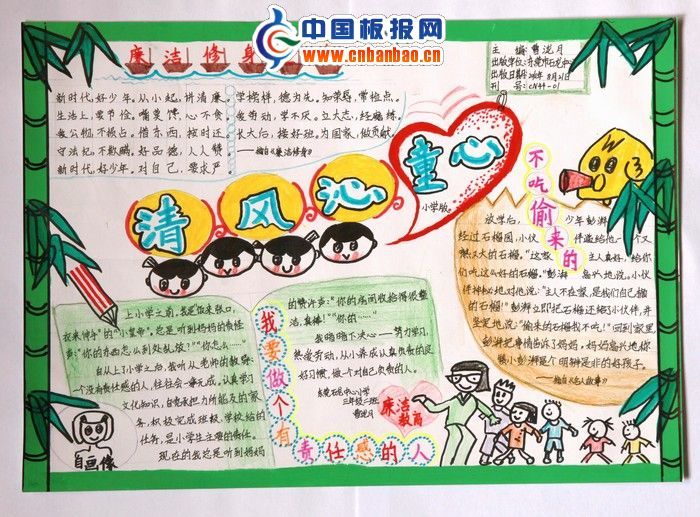 中国板报网
www.cnbanbao.cn
廉洁修身
主 编:曹泷月
出版日期:
刊 号:CN44-01
新时代,好少年。从小起,讲清廉。
生活上,要节俭。
守法纪,不欺瞒。好品德,人人赞。
新时代,好少年。对自己,要求严。
学榜样,德为先。知荣辱,
爱劳动,学不厌。立大志,经磨练。
长大后,接好班。为国家,做贡献。
——摘自《廉洁修身》
清风沁童心
小学版
不吃偷来的
放学后,
少年彭湃
经过石榴园,小伙
伴递给他一个又
红又大的石榴。“这家
主人真好,给你
们吃这么好的石榴。”彭湃
高兴地说。小伙
伴神秘地对他说:“主人不在家,是我们自己摘
的石榴!”彭湃立即把石榴还给小伙伴,并
坚定地说:“偷来的石榴我不吃!”回到家里
彭湃把事情告诉了妈妈,妈妈高兴地称
赞小彭湃是个明辨是非的好孩子。
——摘自《名人故事》
我要做个有责任感的人
上小学之前,我是饭来张口,
衣来伸手的“小皇帝”。总是听到妈妈的责怪
声:“你的东西怎么到处乱放?”“你怎么……”
自从上了小学之后,我听从老师的教导,
一个没有责任感的人,往往会一事无成。认真学习
文化知识,自觉承担力所能及的家
务,积极完成班级、学校给的
任务,是小学生主要的责任。
现在的我总是听到妈妈
的赞许声:“你的房间收拾得很整
洁,真棒!”“你的……”
我暗暗下决心——努力学习,
热爱劳动,从小养成认真负责的良
好习惯,做一个对自己负责的人。
东莞石龙中心小学
三年级二班
曹泷月
廉洁教育
自画像